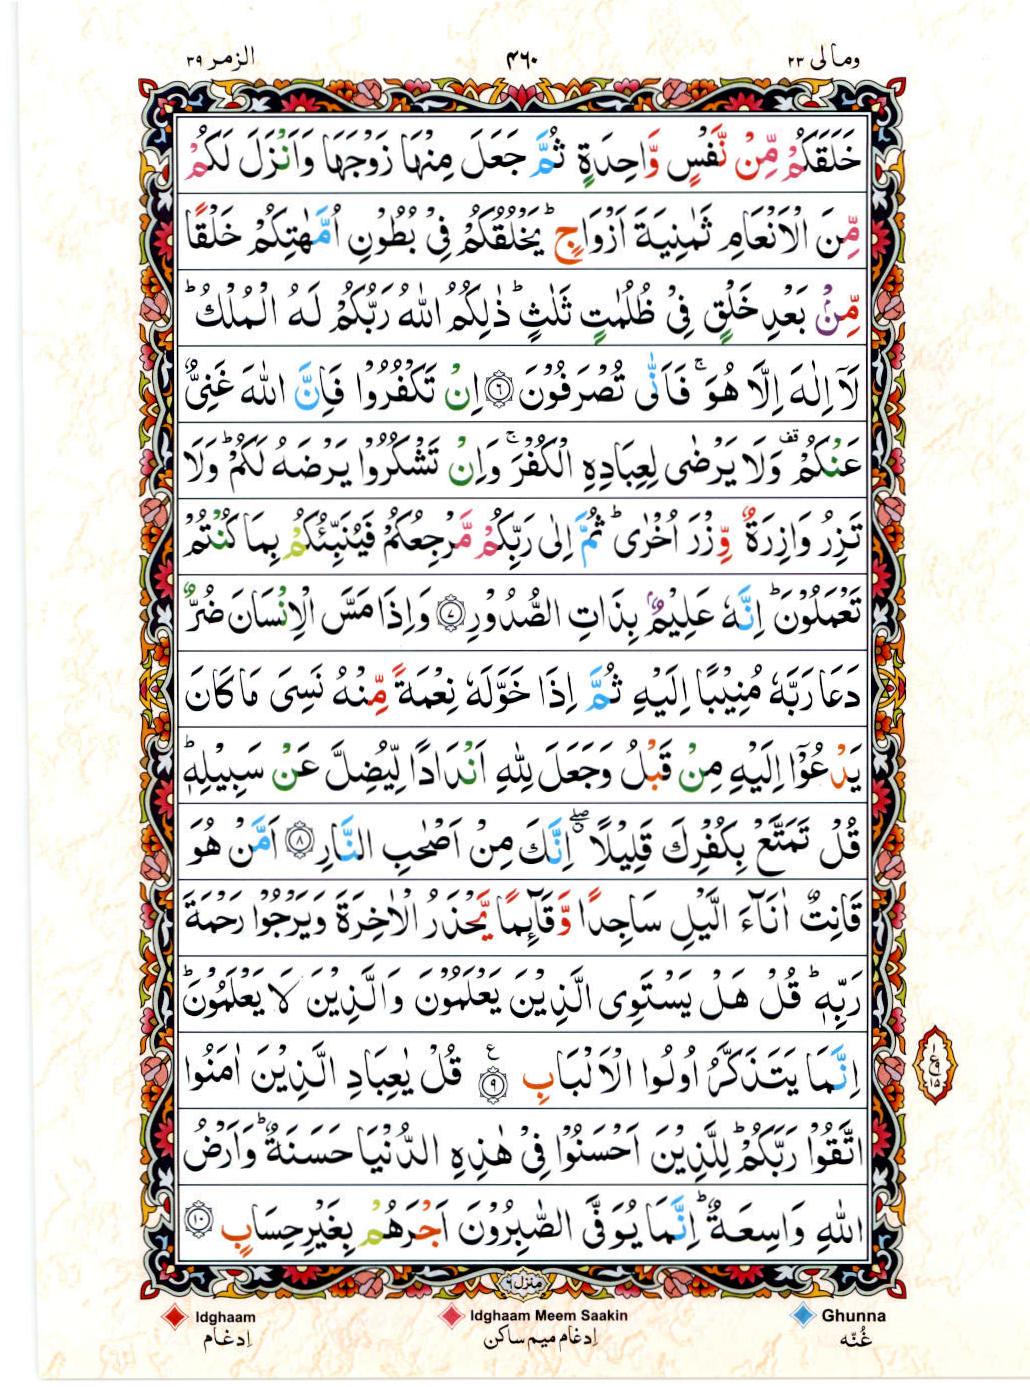 ومالی ٢٣ ۴۶۰ الزمر ٣٩
خَلَقَكُمْ مِّنْ نَّفْسٍ وَّاحِدَةٍ ثُمَّ جَعَلَ مِنْهَا زَوْجَهَا وَاَنْزَلَ لَكُمْ
مِّنَ الْاَنْعَامِ ثَمٰنِيَةَ اَزْوَاجٍ ؕ يَخْلُقُكُمْ فِىْ بُطُوْنِ اُمَّهٰتِكُمْ خَلْقًا
مِّنْۢ بَعْدِ خَلْقٍ فِىْ ظُلُمٰتٍ ثَلٰثٍ ؕ ذٰلِكُمُ اللّٰهُ رَبُّكُمْ لَهُ الْمُلْكُ ؕ
لَاۤ اِلٰهَ اِلَّا هُوَ ۚ فَاَنّٰى تُصْرَفُوْنَ ۝٦ اِنْ تَكْفُرُوْا فَاِنَّ اللّٰهَ غَنِىٌّ
عَنْكُمْ ۟ وَلَا يَرْضٰى لِعِبَادِهِ الْكُفْرَ ۚ وَاِنْ تَشْكُرُوْا يَرْضَهُ لَكُمْ ؕ وَلَا
تَزِرُ وَازِرَةٌ وِّزْرَ اُخْرٰى ؕ ثُمَّ اِلٰى رَبِّكُمْ مَّرْجِعُكُمْ فَيُنَبِّئُكُمْ بِمَا كُنْتُمْ
تَعْمَلُوْنَ ؕ اِنَّهٗ عَلِيْمٌۢ بِذَاتِ الصُّدُوْرِ ۝٧ وَاِذَا مَسَّ الْاِنْسَانَ ضُرٌّ
دَعَا رَبَّهٗ مُنِيْبًا اِلَيْهِ ثُمَّ اِذَا خَوَّلَهٗ نِعْمَةً مِّنْهُ نَسِىَ مَا كَانَ
يَدْعُوْۤا اِلَيْهِ مِنْ قَبْلُ وَجَعَلَ لِلّٰهِ اَنْدَادًا لِّيُضِلَّ عَنْ سَبِيْلِهٖ ؕ
قُلْ تَمَتَّعْ بِكُفْرِكَ قَلِيْلًا ۖ اِنَّكَ مِنْ اَصْحٰبِ النَّارِ ۝٨ اَمَّنْ هُوَ
قَانِتٌ اٰنَآءَ الَّيْلِ سَاجِدًا وَّقَآئِمًا يَّحْذَرُ الْاٰخِرَةَ وَيَرْجُوْا رَحْمَةَ
رَبِّهٖ ؕ قُلْ هَلْ يَسْتَوِى الَّذِيْنَ يَعْلَمُوْنَ وَالَّذِيْنَ لَا يَعْلَمُوْنَ ؕ
اِنَّمَا يَتَذَكَّرُ اُولُوا الْاَلْبَابِ ۝٩ ع قُلْ يٰعِبَادِ الَّذِيْنَ اٰمَنُوا
اتَّقُوْا رَبَّكُمْ ؕ لِلَّذِيْنَ اَحْسَنُوْا فِىْ هٰذِهِ الدُّنْيَا حَسَنَةٌ ؕ وَاَرْضُ
اللّٰهِ وَاسِعَةٌ ؕ اِنَّمَا يُوَفَّى الصّٰبِرُوْنَ اَجْرَهُمْ بِغَيْرِ حِسَابٍ ۝١٠
منزل ٦
Ghunna Idghaam Meem Saakin Idghaam
غُنّه اِدغام میم ساکن اِدغام